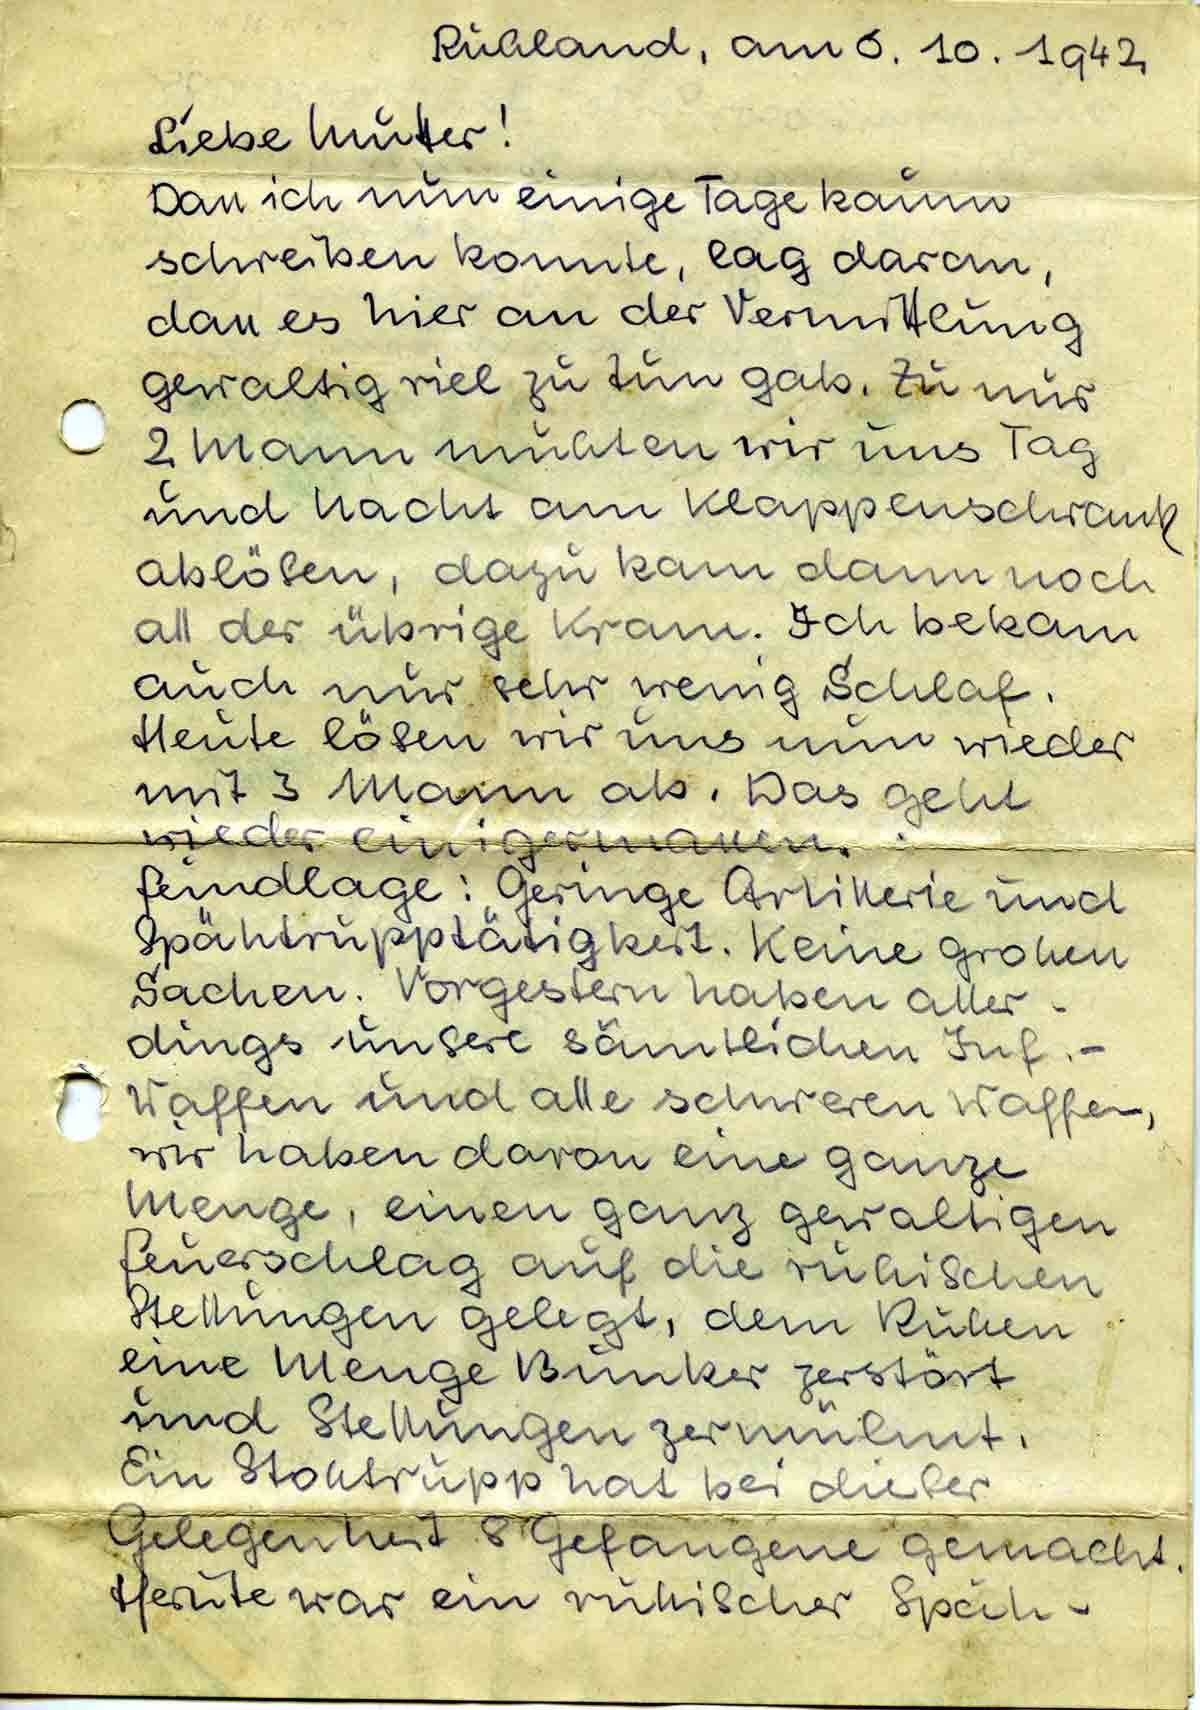 Rußland, am 6. 10. 1942
Liebe Mutter!
Daß ich nun einige Tage kaum
schreiben konnte, lag daran,
daß es hier an der Vermittlung
gewaltig viel zu tun gab. Zu nur
2 Mann mußten wir uns Tag
und Nacht am Klappenschrank
ablösen, dazu kam dann noch
all der übrige Kram. Ich bekam
auch nur sehr wenig Schlaf.
Heute lösen wir uns nun wieder
mit 3 Mann ab. Das geht
wieder einigermaßen.
Feindlage: Geringe Artillerie und
Spähtrupptätigkeit. Keine großen
Sachen. Vorgestern haben aller-
dings unsere sämtlichen Inf.-
Waffen und alle schweren Waffen,
wir haben davon eine ganze
Menge, einen ganz gewaltigen
Feuerschlag auf die rußischen
Stellungen gelegt, dem Rußen
eine Menge Bunker zerstört
und Stellungen zermülmt.
Ein Stoßtrupp hat bei dieser
Gelegenheit 8 Gefangene gemacht.
Heute war ein rußischer Späh-